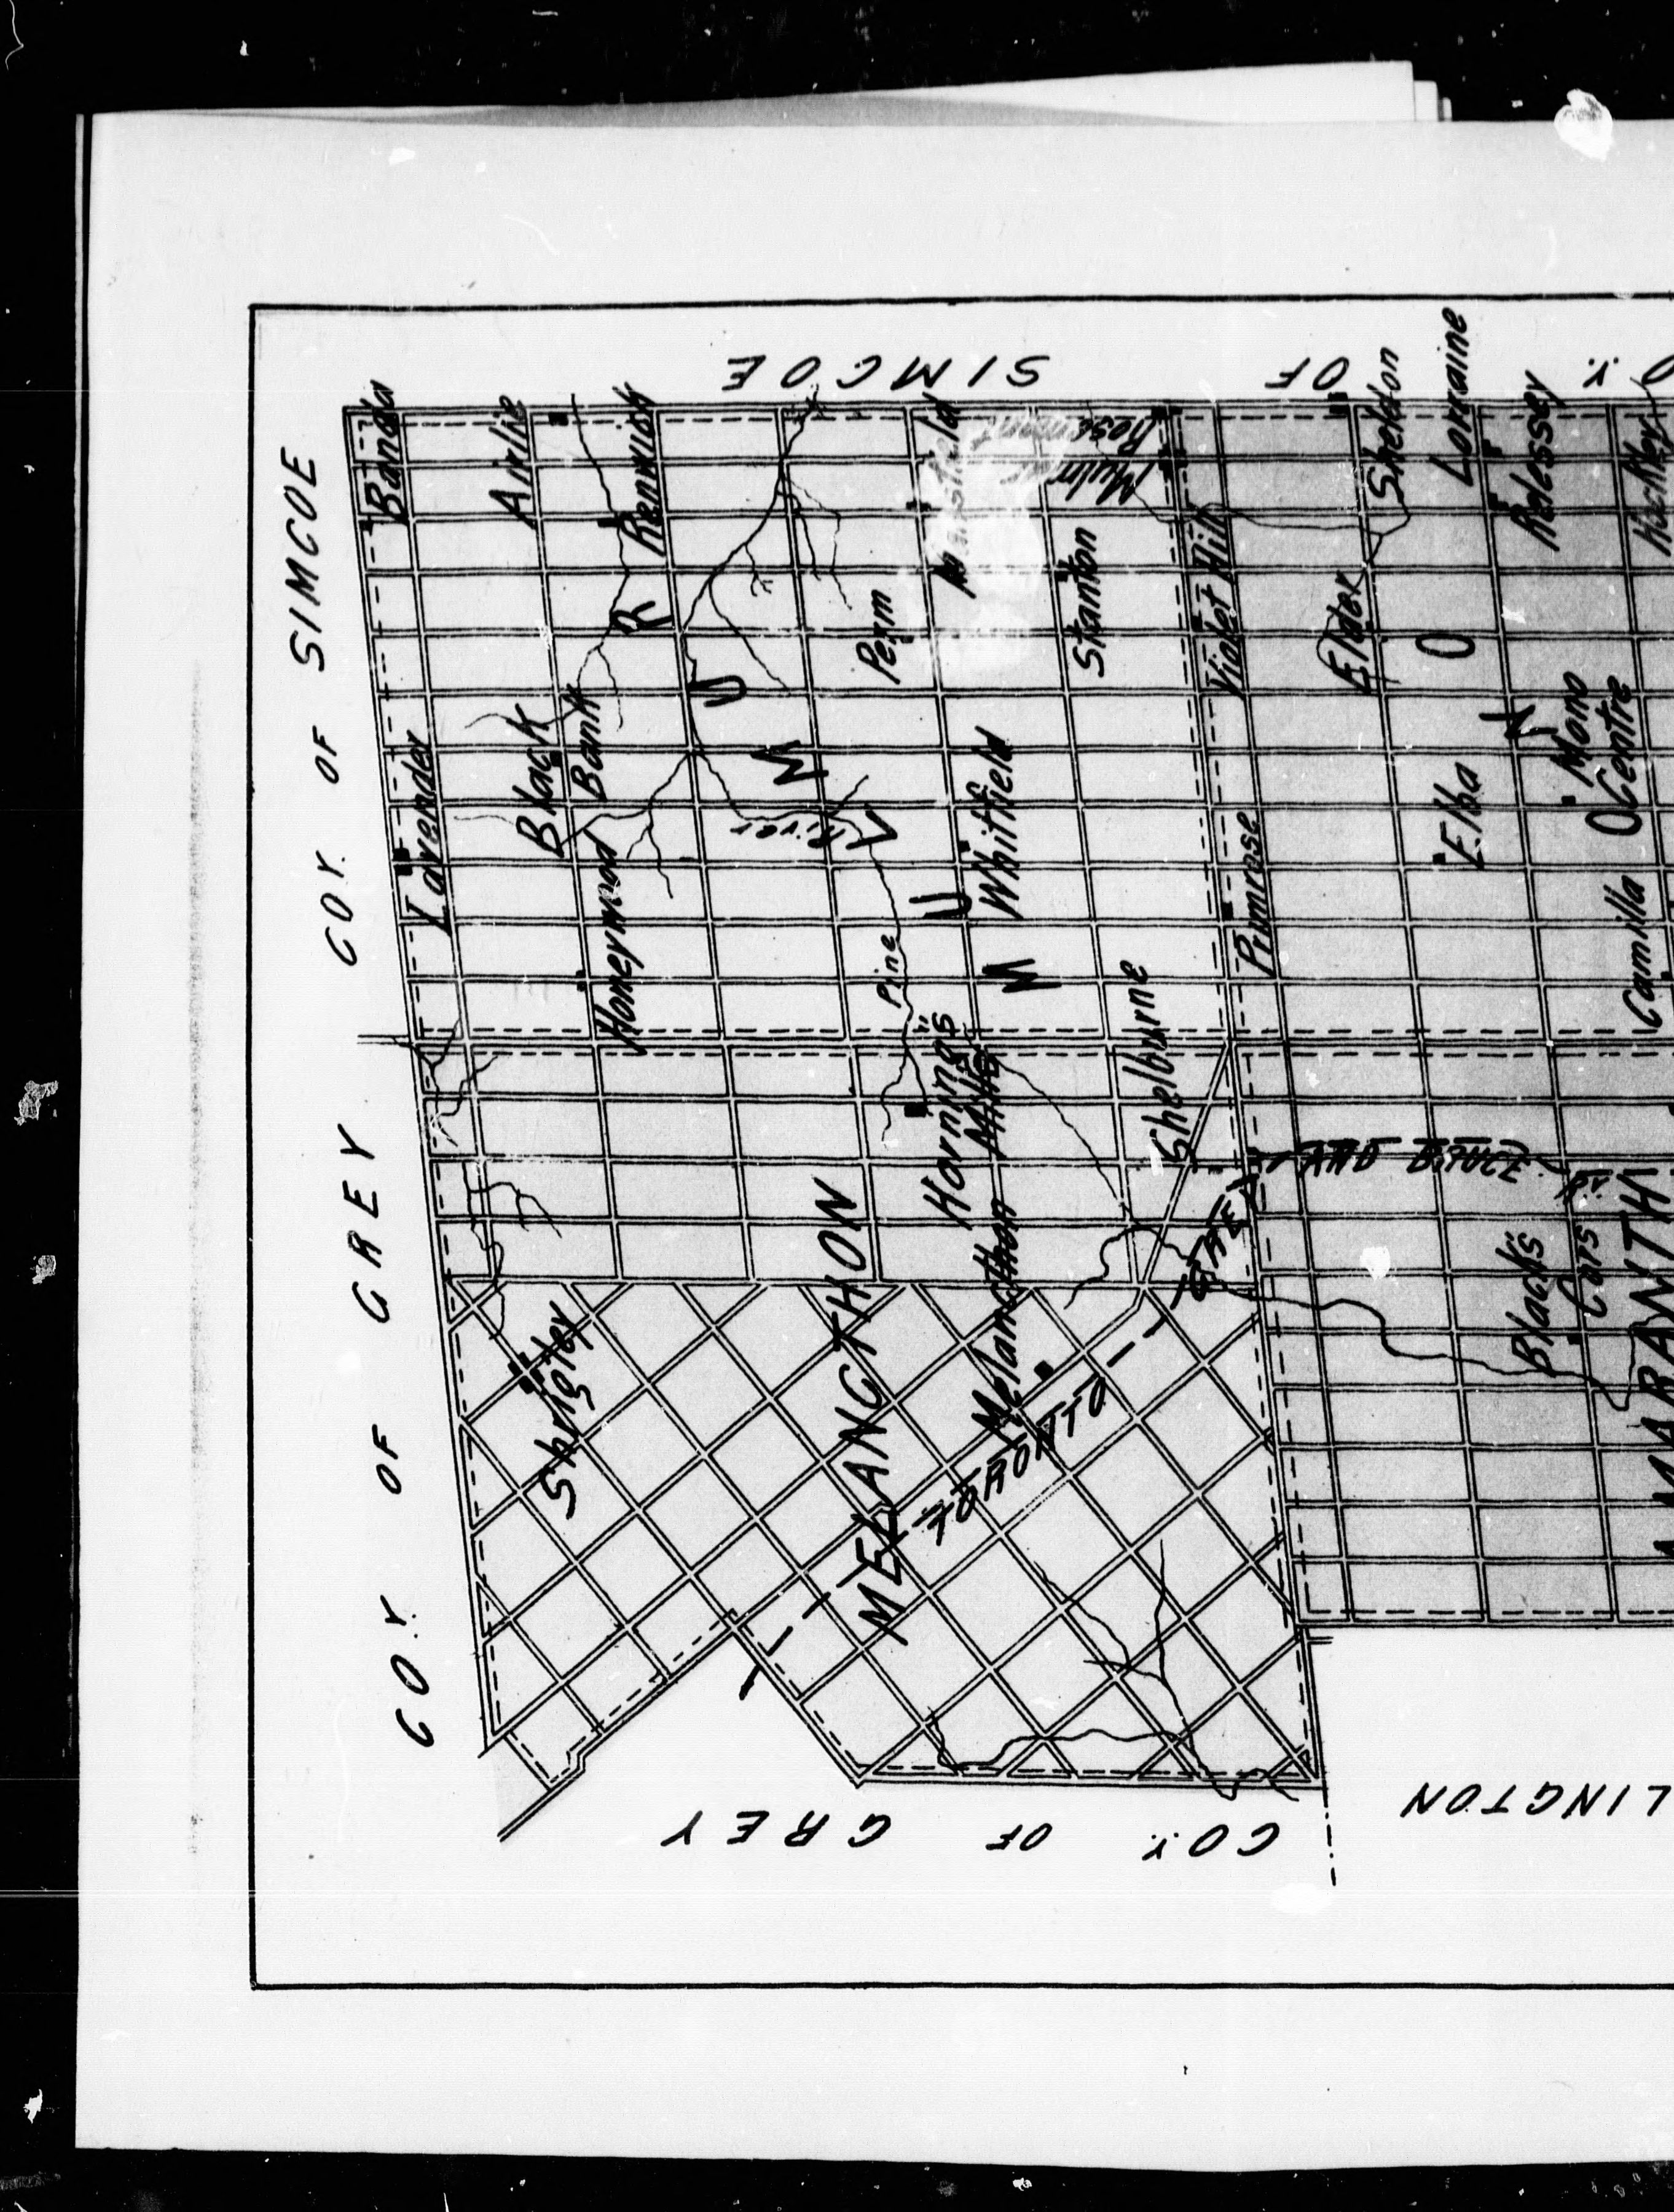 COY. OF GREY
COY. OF SIMCOE
SIMCOE
OF
Banda
Airlie
Renwick
Lavender
Black
Bank
Honeywood
River
Pine
Perm
Stanton
Whitfield
Horning's
Mills
Shelburne
Violet Hill
Primrose
MULMUR
Shrigley
MELANCTHON
Melancthon
TORONTO
GREY
AND BRUCE
RY.
Sheldon
Lorraine
Relessey
Hockley
Elder
Elba
Mono
Centre
Camilla
MONO
Black's
Cors
AMARANTH
COY. OF GREY
LINGTON